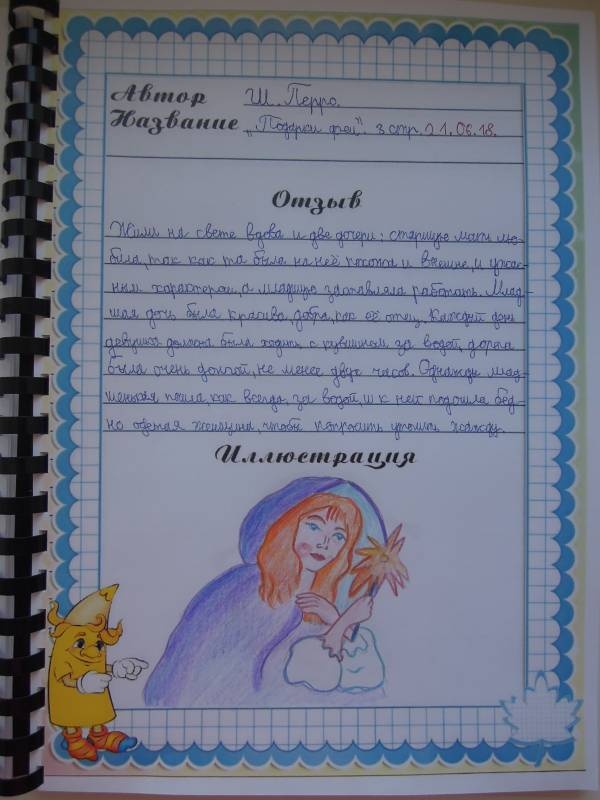 Автор Ш. Перро.
Название „Подарки феи". 3 стр. 21.06.18.
Отзыв
Жили на свете вдова и две дочери: старшую мать лю-
била, так как та была на неё похожа и внешне, и ужас-
ным характером, а младшую заставляла работать. Млад-
шая дочь была красива, добра, как её отец. Каждый день
девушка должна была ходить с кувшином за водой, дорога
была очень долгой, не менее двух часов. Однажды млад-
шенькая пошла, как всегда, за водой, и к ней подошла бед-
но одетая женщина, чтобы попросить утолить жажду.
Иллюстрация